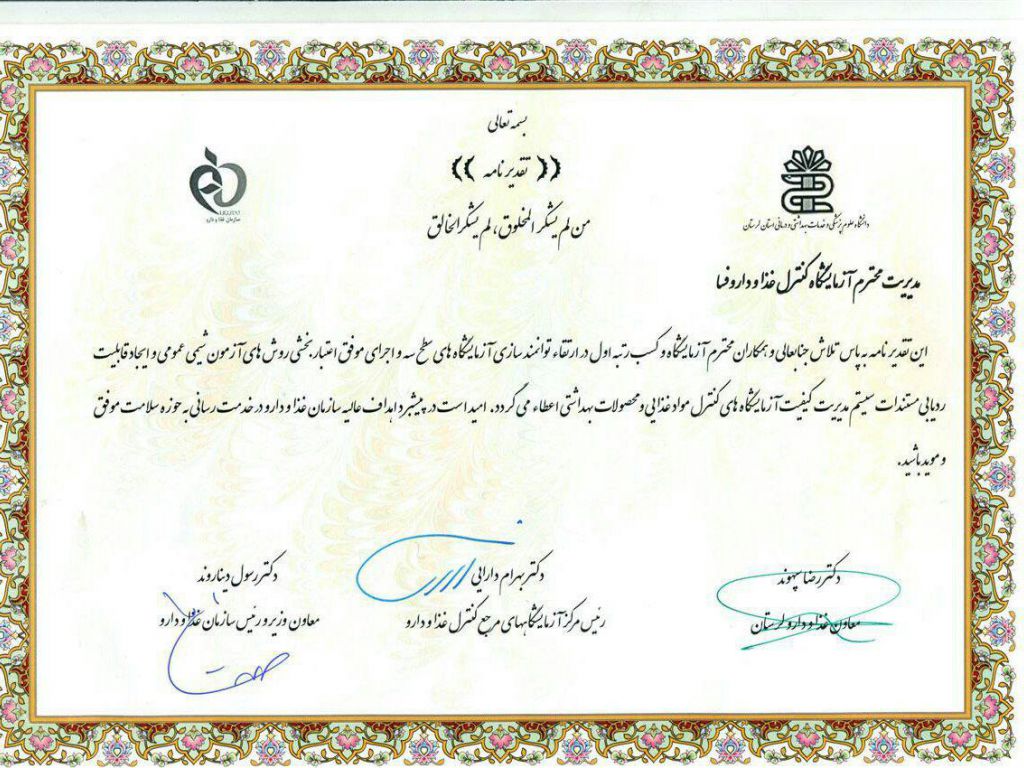 بسمه تعالی
(( تقدیر نامه ))
من لم یشکر المخلوق، لم یشکر الخالق
سازمان غذا و دارو
دانشگاه علوم پزشکی و خدمات بهداشتی و درمانی استان لرستان
مدیریت محترم آزمایشگاه کنترل غذا و دارو فسا
این تقدیر نامه به پاس تلاش جنابعالی و همکاران محترم آزمایشگاه و کسب رتبه اول در ارتقاء توانمند سازی آزمایشگاه های سطح سه و اجرای موفق اعتبار بخشی روش های آزمون شیمی عمومی و ایجاد قابلیت
ردیابی مستندات سیستم مدیریت کیفیت آزمایشگاه های کنترل مواد غذایی و محصولات بهداشتی اعطاء می گردد. امید است در پیشبرد اهداف عالیه سازمان غذا و دارو در خدمت رسانی به حوزه سلامت موفق
و موید باشید.
دکتر رضا سپهوند
معاون غذا و دارو لرستان
دکتر بهرام دارایی
رئیس مرکز آزمایشگاههای مرجع کنترل غذا و دارو
دکتر رسول دیناروند
معاون وزیر و رئیس سازمان غذا و دارو